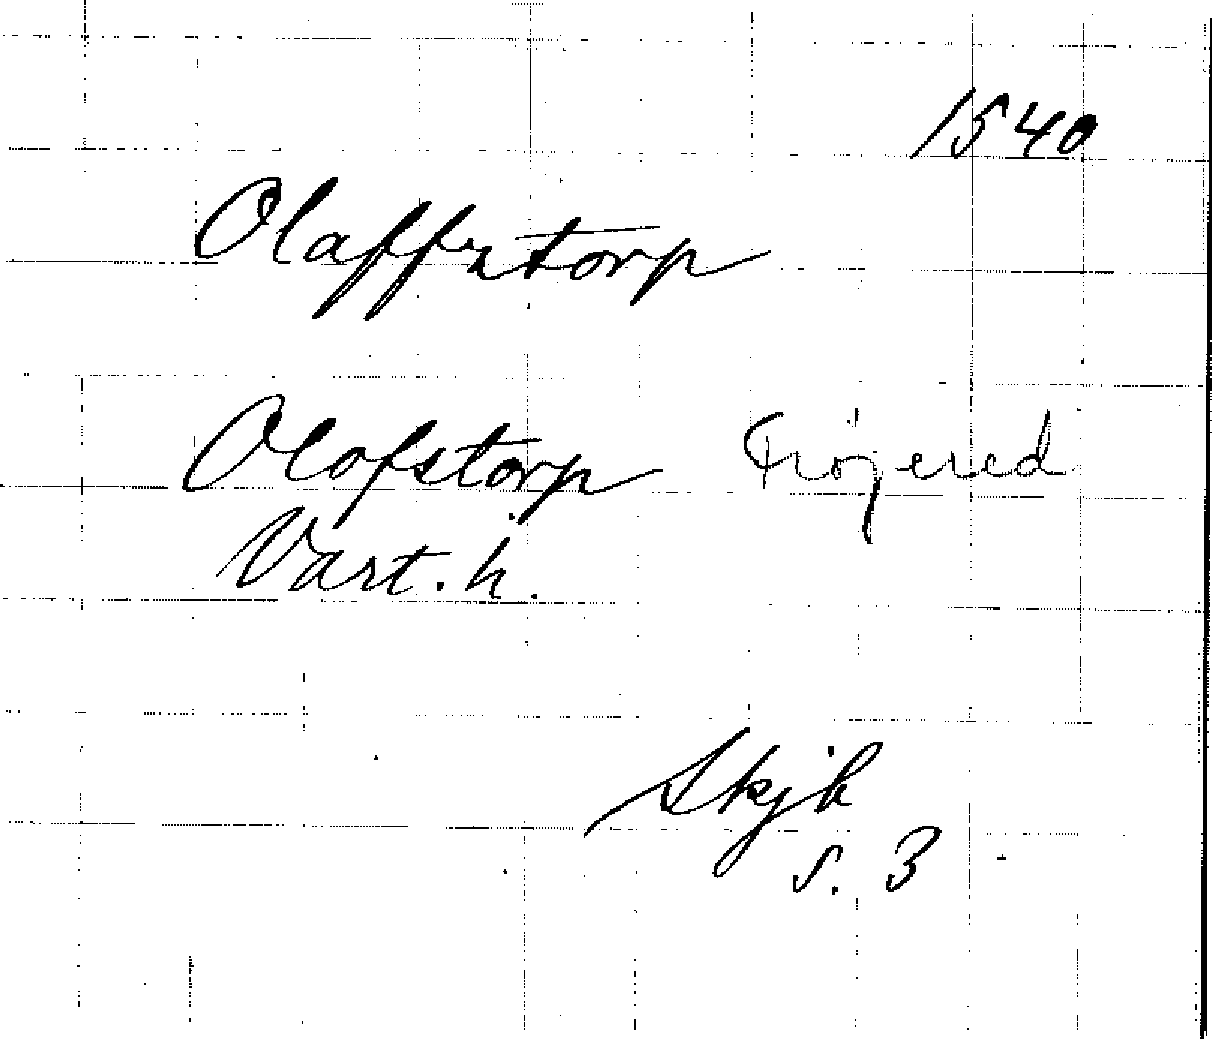 1540
Olaffstorp
Olofstorp Fröjered
Vart. h.
Skjb
s. 3